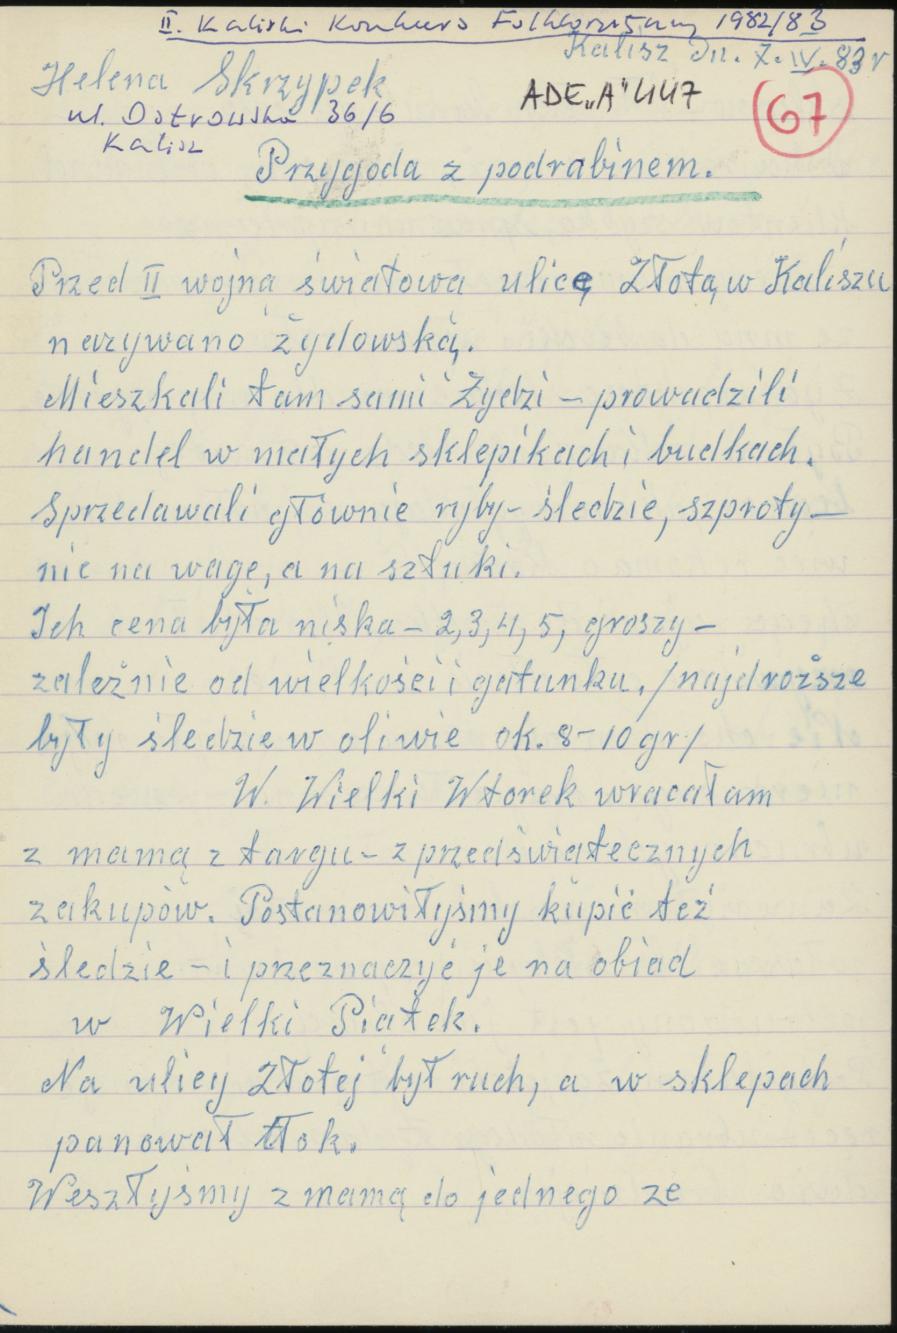 II. Kaliski Konkurs Folklorystyczny 1982/83
Kalisz dn. 7. IV. 83 r
Helena Skrzypek
ADE „A" 447
67
ul. Ostrowska 36/6
Kalisz
Przygoda z podrabinem.
Przed II wojną światową ulicę Złotą w Kaliszu
nazywano żydowską.
Mieszkali tam sami Żydzi – prowadzili
handel w małych sklepikach i budkach.
Sprzedawali głównie ryby – śledzie, szproty –
nie na wagę, a na sztuki.
Ich cena była niska – 2, 3, 4, 5, groszy –
zależnie od wielkości i gatunku. /najdroższe
były śledzie w oliwie ok. 8 – 10 gr/
W. Wielki Wtorek wracałam
z mamą z targu – z przedświątecznych
zakupów. Postanowiłyśmy kupić też
śledzie – i przeznaczyć je na obiad
w Wielki Piątek.
Na ulicy Złotej był ruch, a w sklepach
panował tłok.
Weszłyśmy z mamą do jednego ze